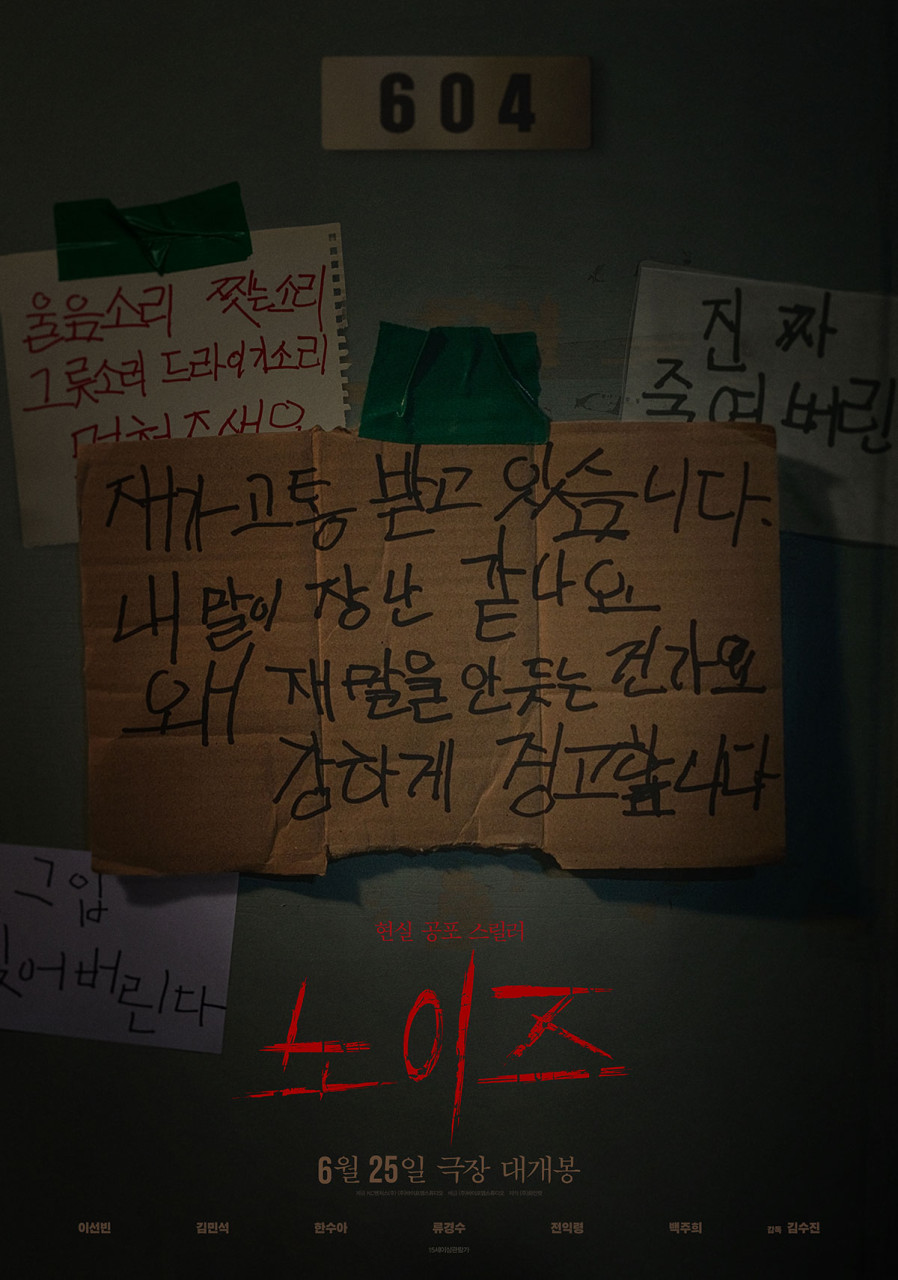 604
울음소리 찢는소리
그릇소리 드라이기소리
멈춰주세요
진짜
죽여버린
재가고통 받고 있습니다.
내 말이 장난 같나요
왜 재 말을 안듣는 건가요
강하게 경고합니다
그입
찢어버린다
현실 공포 스릴러
노이즈
6월 25일 극장 대개봉
이선빈 김민석 한수아 류경수 전익령 백주희 감독 김수진
15세이상관람가